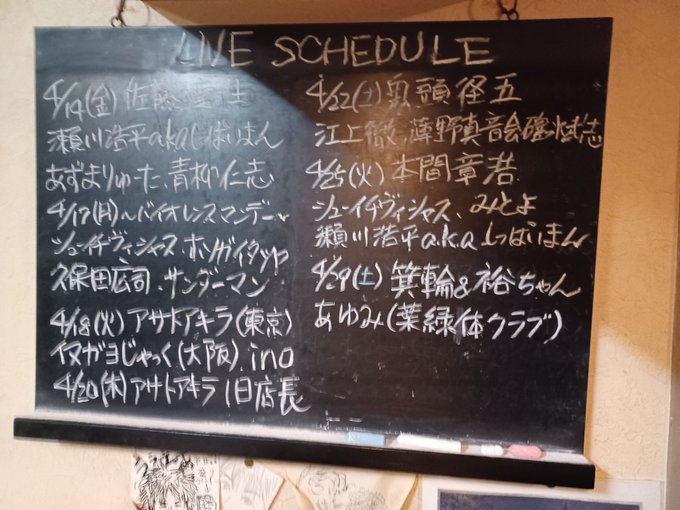 LIVE SCHEDULE
4/14(金) 佐藤 生
瀬川浩平a.k.aしっぱいまん
あずまりゅーた、青柳仁志
4/17(月)〜バイオレンスマンデー〜
シューイチヴィシャス、ホンガイタツヤ
久保田広司、サンダーマン
4/18(火)アサトアキラ(東京)
イヌガヨじゃっく(大阪)、ino
4/20(木)アサトアキラ 1日店長
4/22(土)乳頭径五
江上徹、薄野真音会
4/25(火)本間章若
シューイチヴィシャス、みとよ
瀬川浩平a.k.aしっぱいまん
4/29(土)箕輪&裕ちゃん
あゆみ(葉緑体クラブ)